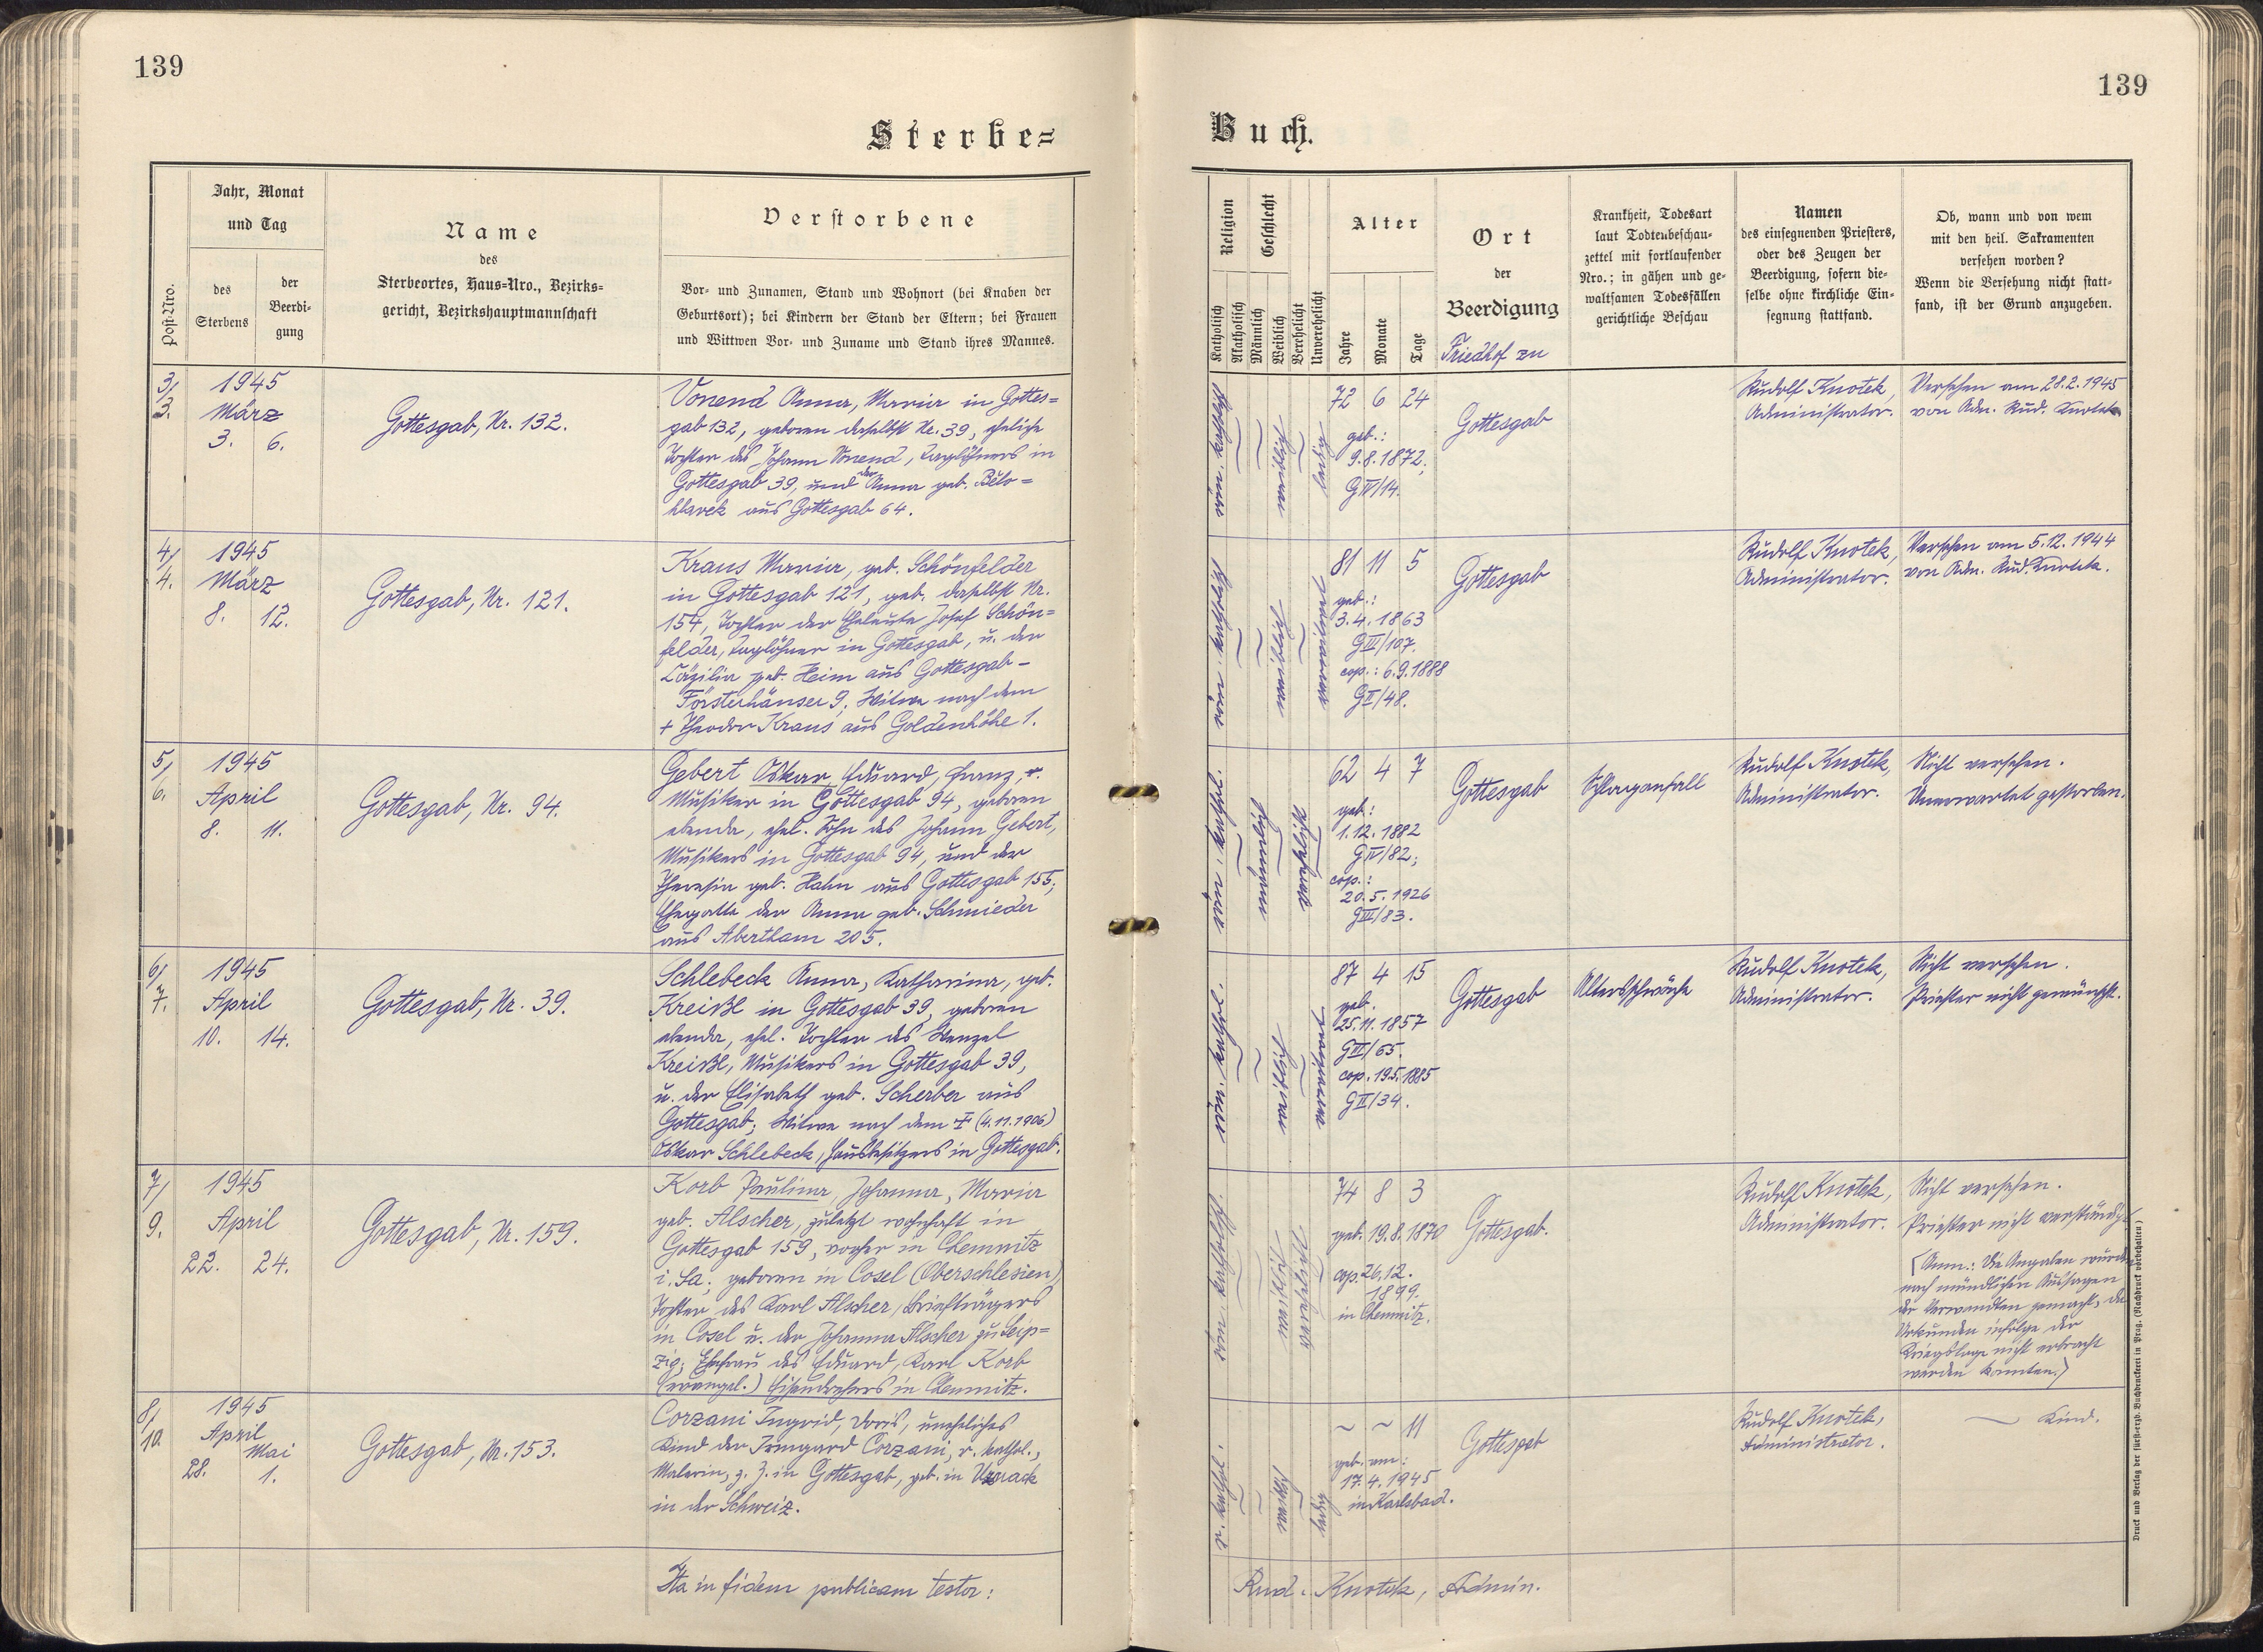 139
139
Sterbe=
Buch.
Post-Nro.
Jahr, Monat
und Tag
des
Sterbens
der
Beerdi-
gung
Name
des
Sterbeortes, Haus=Nro., Bezirks=
gericht, Bezirkshauptmannschaft
Verstorbene
Vor- und Zunamen, Stand und Wohnort (bei Knaben der
Geburtsort); bei Kindern der Stand der Eltern; bei Frauen
und Wittwen Vor- und Zuname und Stand ihres Mannes.
Religion
Katholisch
Akatholisch
Geschlecht
Männlich
Weiblich
Verehelicht
Unverehelicht
Alter
Jahre
Monate
Tage
Ort
der
Beerdigung
Friedhof zu
Krankheit, Todesart
laut Todtenbeschau-
zettel mit fortlaufender
Nro.; in gähen und ge-
waltsamen Todesfällen
gerichtliche Beschau
Namen
des einsegnenden Priesters,
oder des Zeugen der
Beerdigung, sofern die-
selbe ohne kirchliche Ein-
segnung stattfand.
Ob, wann und von wem
mit den heil. Sakramenten
versehen worden?
Wenn die Versehung nicht statt-
fand, ist der Grund anzugeben.
3/
3.
1945
März
3. 6.
Gottesgab, Nr. 132.
Vonend Anna, Maria in Gottes=
gab 132, geboren daselbst Nr. 39, eheliche
Tochter des Johann Vonend, Taglöhners in
Gottesgab 39, und der Anna geb. Bělo=
hlavek aus Gottesgab 64.
röm. katholisch
weiblich
ledig
72 6 24
geb.:
9.8.1872;
G IV/14.
Gottesgab
Rudolf Knotek,
Administrator.
Versehen am 28.2.1945
von Adm. Rud. Knotek
4/
4.
1945
März
8. 12.
Gottesgab, Nr. 121.
Kraus Maria, geb. Schönfelder
in Gottesgab 121, geb. daselbst Nr.
154, Tochter der Eheleute Josef Schön=
felder, Taglöhner in Gottesgab, u. der
Cäzilia geb. Heim aus Gottesgab-
Försterhäuser 9; Witwe nach dem
+ Theodor Kraus aus Goldenhöhe 1.
röm. katholisch
weiblich
verwitwet
81 11 5
geb.:
3.4.1863
G III/107.
cop.: 6.9.1888
G II/48.
Gottesgab
Rudolf Knotek,
Administrator.
Versehen am 5.12.1944
von Adm. Rud. Knotek.
5/
6.
1945
April
8. 11.
Gottesgab, Nr. 94.
Gebert Oskar, Eduard, Franz, r.
Musiker in Gottesgab 94, geboren
ebenda, ehel. Sohn des Johann Gebert,
Musikers in Gottesgab 94, und der
Theresia geb. Hahn aus Gottesgab 155;
Ehegatte der Anna geb. Schmieder
aus Abertham 205.
röm. kathol.
männlich
verehelicht
62 4 7
geb.:
1.12.1882
G IV/82;
cop.:
20.5.1926
G III/83.
Gottesgab
Schlaganfall
Rudolf Knotek,
Administrator.
Nicht versehen.
Unerwartet gestorben.
6/
7.
1945
April
10. 14.
Gottesgab, Nr. 39.
Schlebeck Anna, Katharina, geb.
Kreißl in Gottesgab 39, geboren
ebenda, ehel. Tochter des Wenzel
Kreißl, Musikers in Gottesgab 39,
u. der Elisabeth geb. Scherber aus
Gottesgab; Witwe nach dem + (4.11.1906)
Oskar Schlebeck, Hausbesitzers in Gottesgab.
röm. kathol.
weiblich
verwitwet
87 4 15
geb.
25.11.1857
G III/65.
cop. 19.5.1885
G II/34.
Gottesgab
Altersschwäche
Rudolf Knotek,
Administrator.
Nicht versehen.
Priester nicht gewünscht.
7/
9.
1945
April
22. 24.
Gottesgab, Nr. 159.
Korb Paulina, Johanna, Maria
geb. Alscher, zuletzt wohnhaft in
Gottesgab 159, vorher in Chemnitz
i. Sa; geboren in Cosel (Oberschlesien),
Tochter des Karl Alscher, Briefträgers
in Cosel u. der Johanna Alscher zu Leip=
zig; Ehefrau des Eduard, Karl Korb
(evangel.) Eisendrehers in Chemnitz.
röm. katholisch
weiblich
verehelicht
74 8 3
geb. 19.8.1870
cop. 26.12.
1899.
in Chemnitz.
Gottesgab.
Rudolf Knotek,
Administrator.
Nicht versehen.
Priester nicht verständigt
[Anm.: Die Angaben wurden
nach mündlichen Aussagen
der Verwandten gemacht, da
Urkunden infolge der
Kriegslage nicht erbracht
werden konnten.]
8/
10.
1945
April
Mai
28. 1.
Gottesgab, Nr. 153.
Corzani Ingrid, Doris, uneheliches
Kind der Irmgard Corzani, r. kathol.,
Malerin, z. Z. in Gottesgab, geb. in
in der Schweiz.
r. kathol.
weiblich
ledig
~ ~ 11
geb. am:
17.4.1945
in Karlsbad.
Gottesgab
Rudolf Knotek,
Administrator.
~ Kind.
Ita in fidem publicam testor:
Rud. Knotek, Admin.
Druck und Verlag der fürst-erzb. Buchdruckerei in Prag. (Nachdruck vorbehalten)